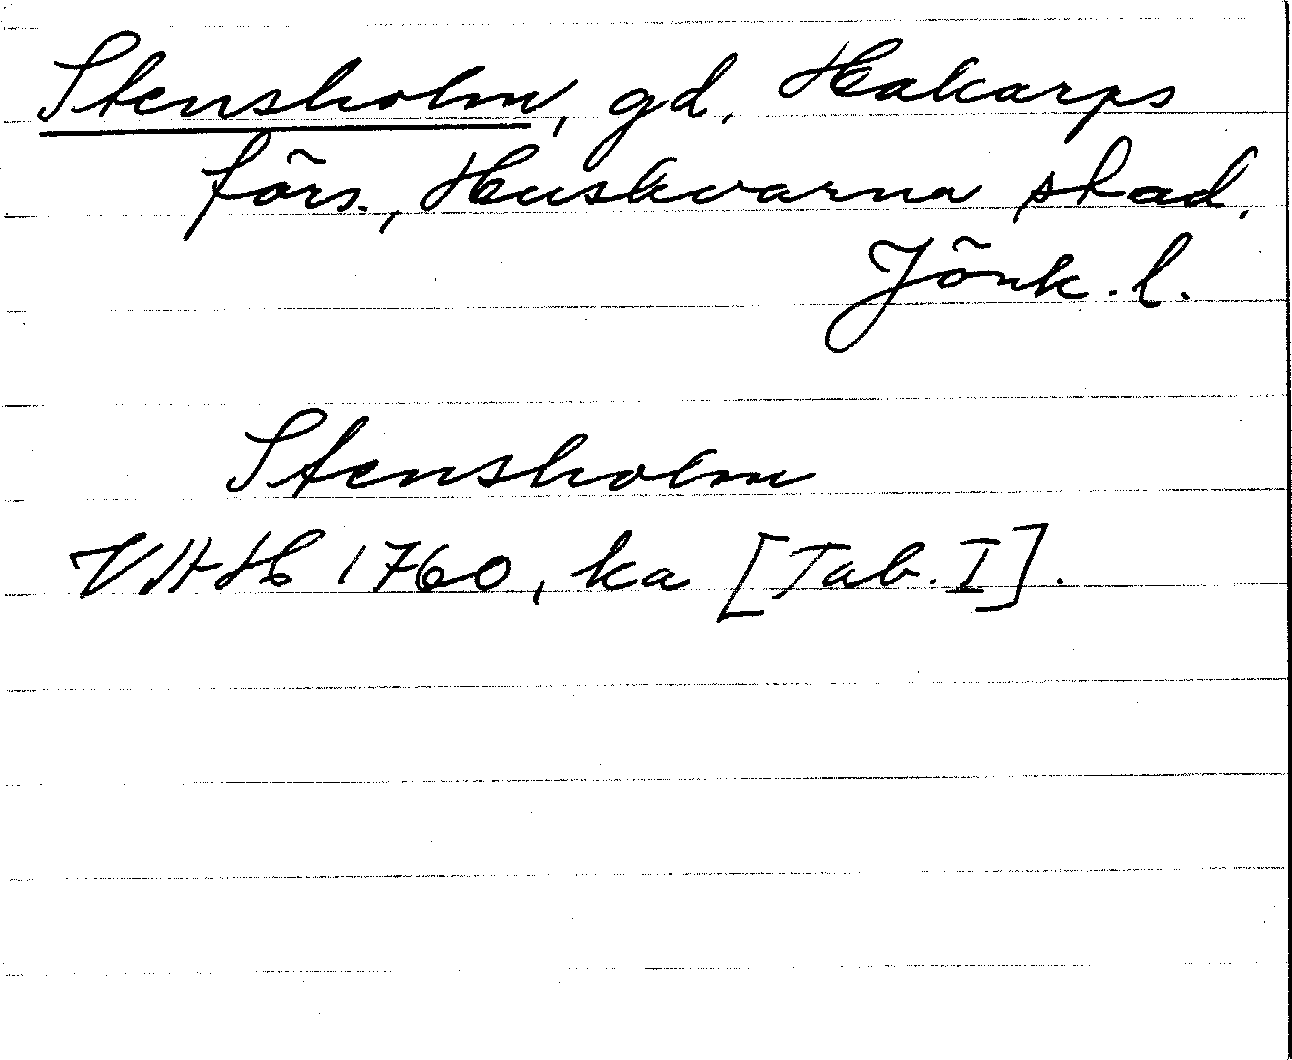 Stensholm, gd. Hakarps
förs., Huskvarna stad.
Jönk. l.
Stensholm
VHH 1760, ka [Tab. I].